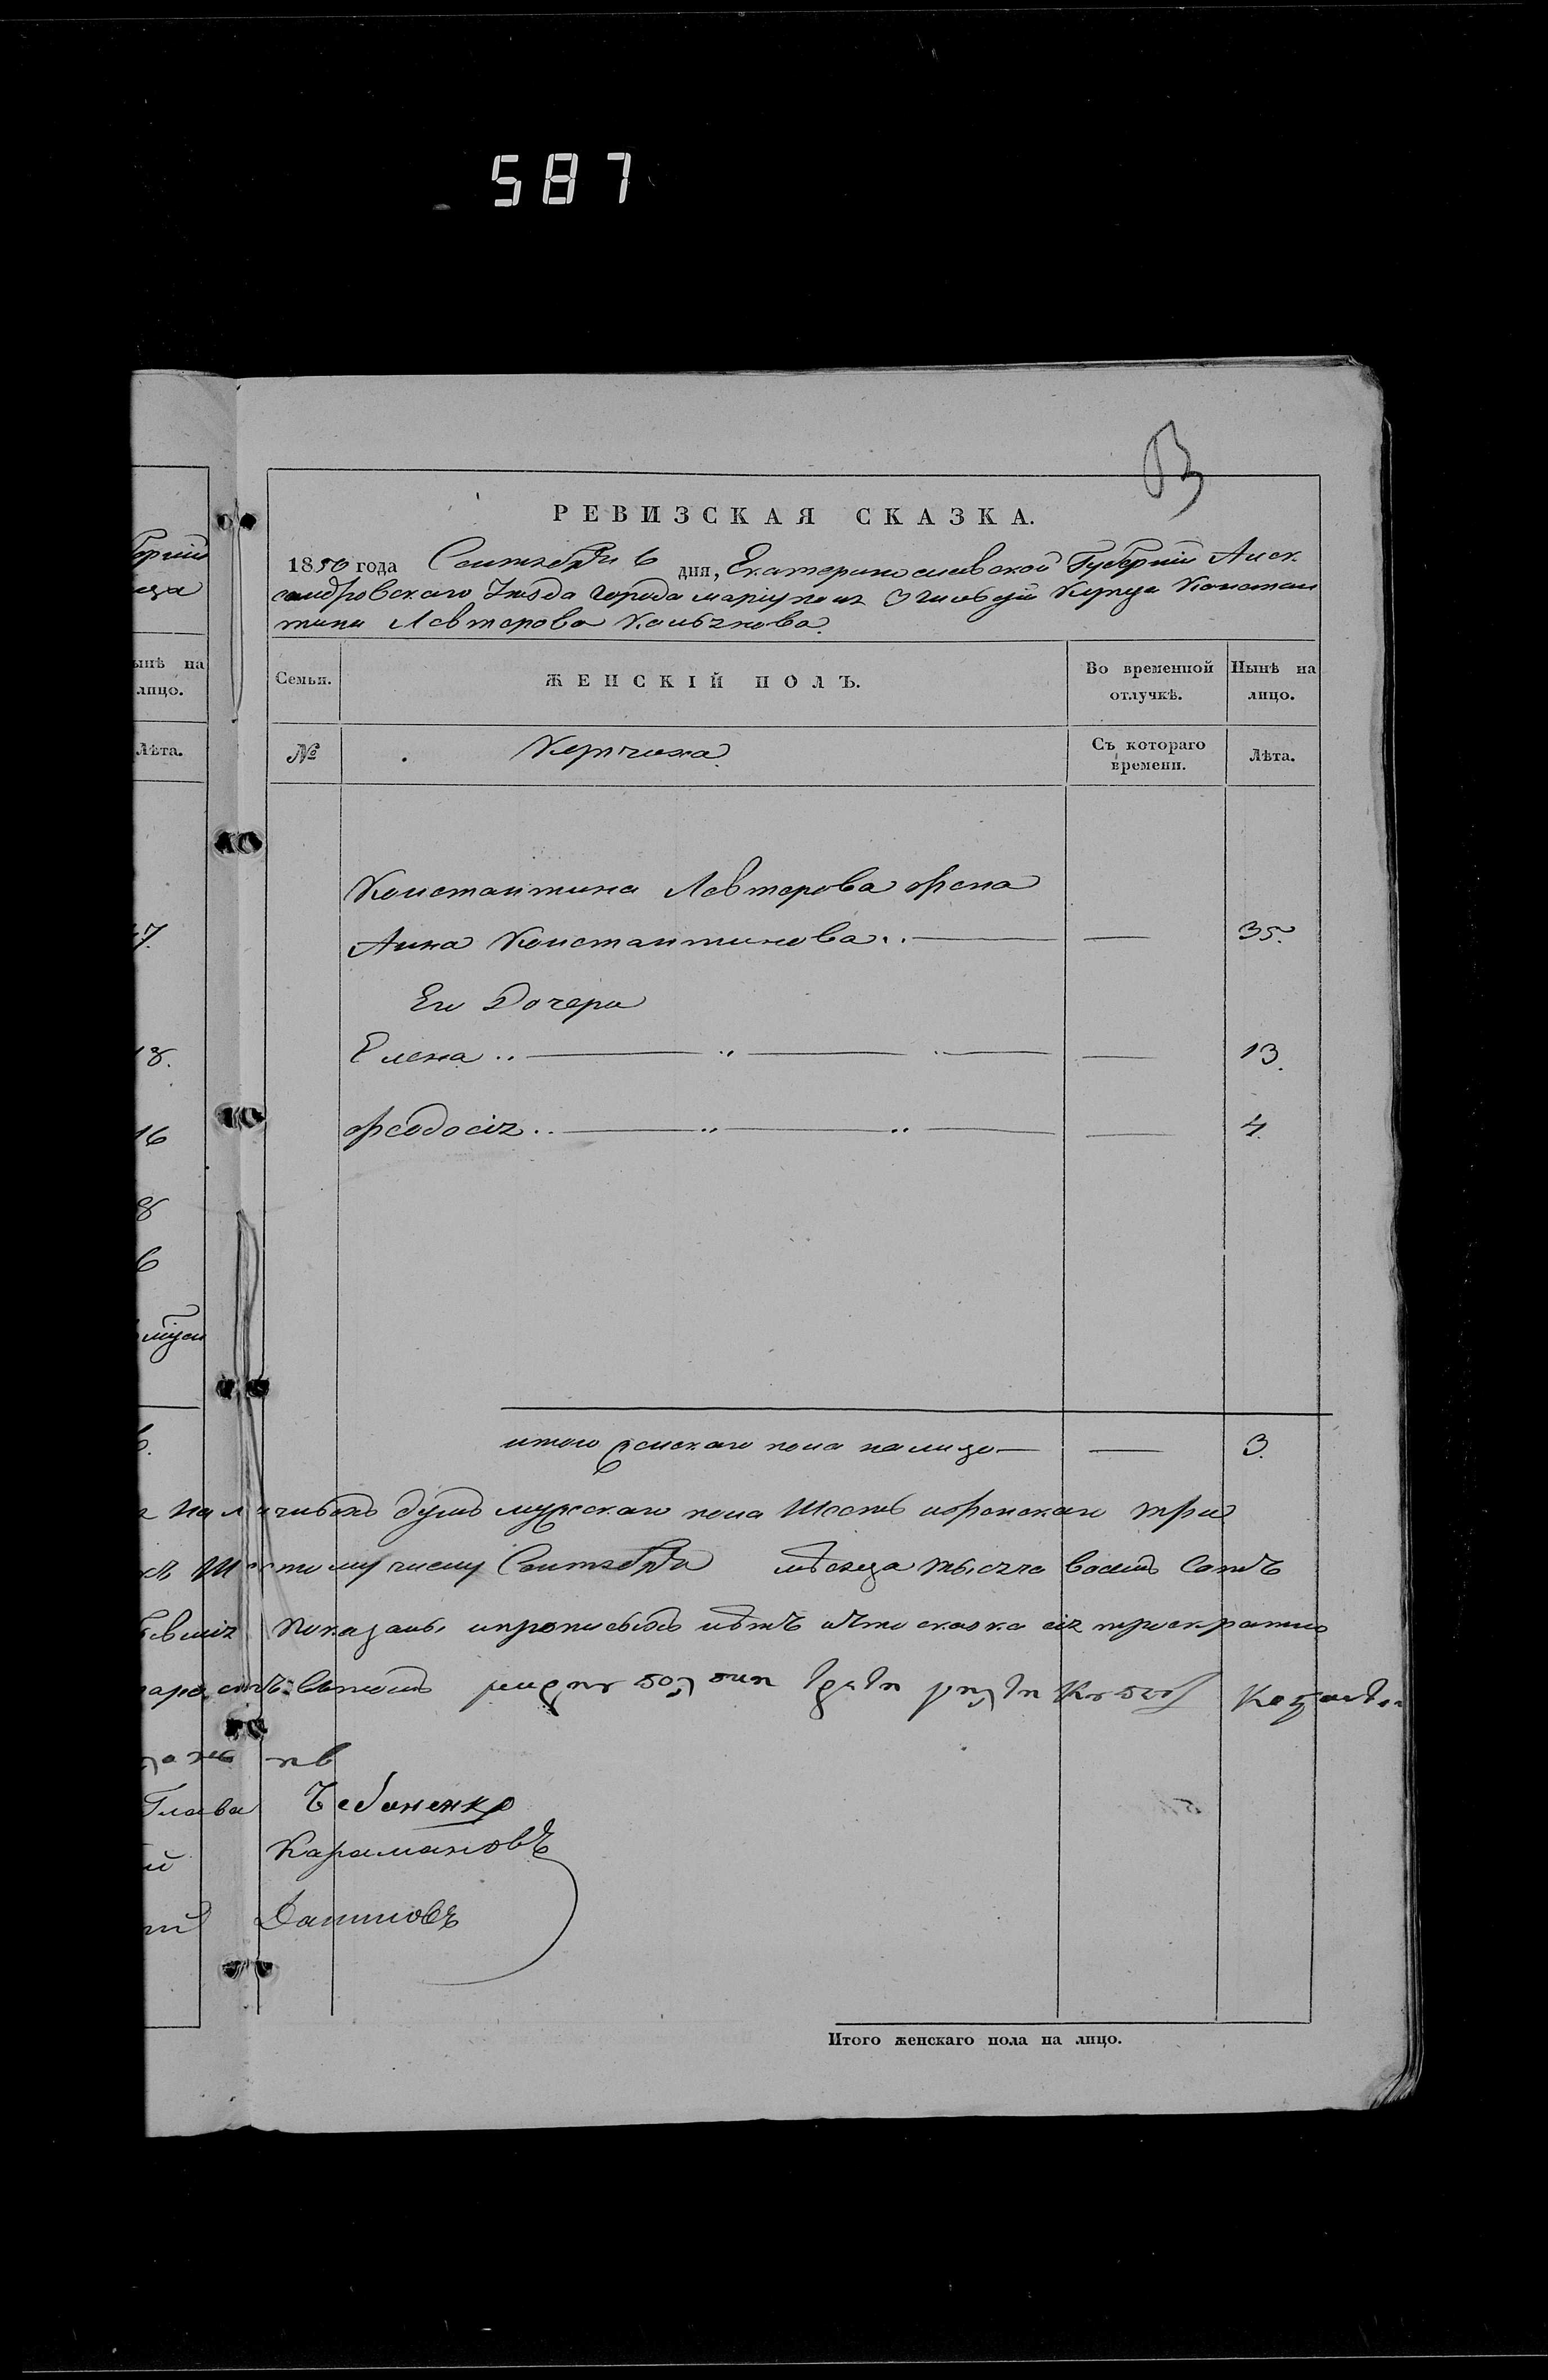 587
13
РЕВИЗСКАЯ СКАЗКА.
1850 года Сентября 6 дня, Екатеринославской Губерніи Алек-
сандровского Уезда города Маріуполя 3 Гильдіи Купца Констан
тина Левтерова
Семьи. ЖЕНСКІЙ ПОЛЪ. Во временной отлучкѣ. Нынѣ на лицо.
№ Купчиха Съ котораго времени. Лѣта.
Константина Левтерова жена
Анна Константинова 35.
Его Дочери
Елена 13.
Феодосія 4.
итого женскаго пола налицо 3.
душъ мужскаго пола Шесть и женскаго три
числу Сентября мѣсяца тысяча восемъ Сотъ
показаны и прописныхъ нѣтъ и что сказка сія троекратно
Глава Чебаненко
Карамановъ
Данииловъ
Итого женскаго пола на лицо.
нынѣ на
лицо.
Лѣта.
47.
18.
16
8
6
6.